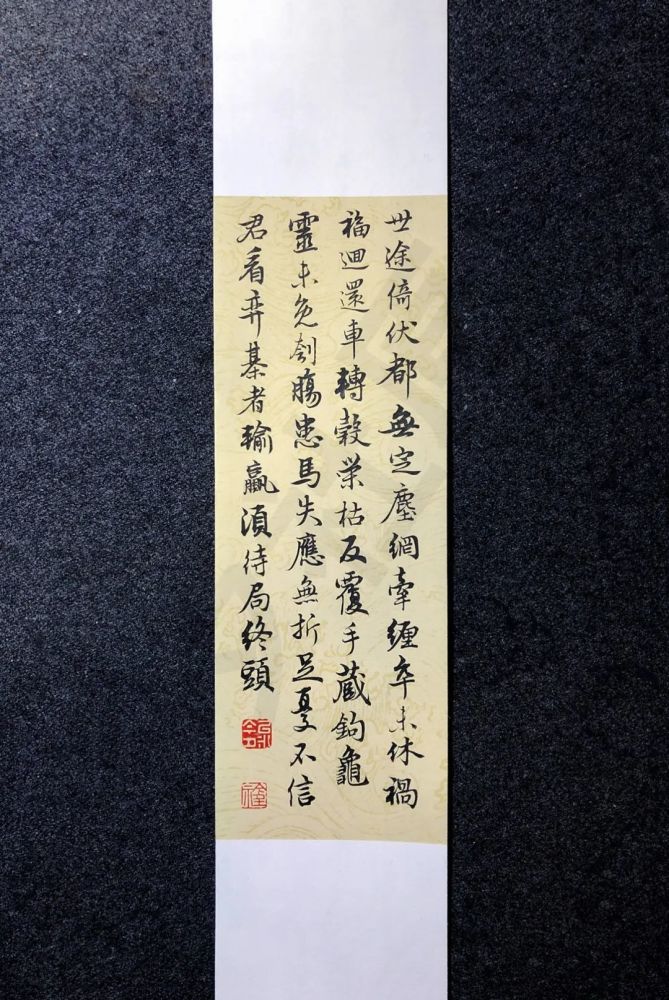 世途倚伏都無定塵網牽纏卒未休禍
福迴還車轉轂荣枯反覆手藏鉤龜
靈未免刳腸患馬失應無折足憂不信
君看弈棊者輸贏湏待局終頭